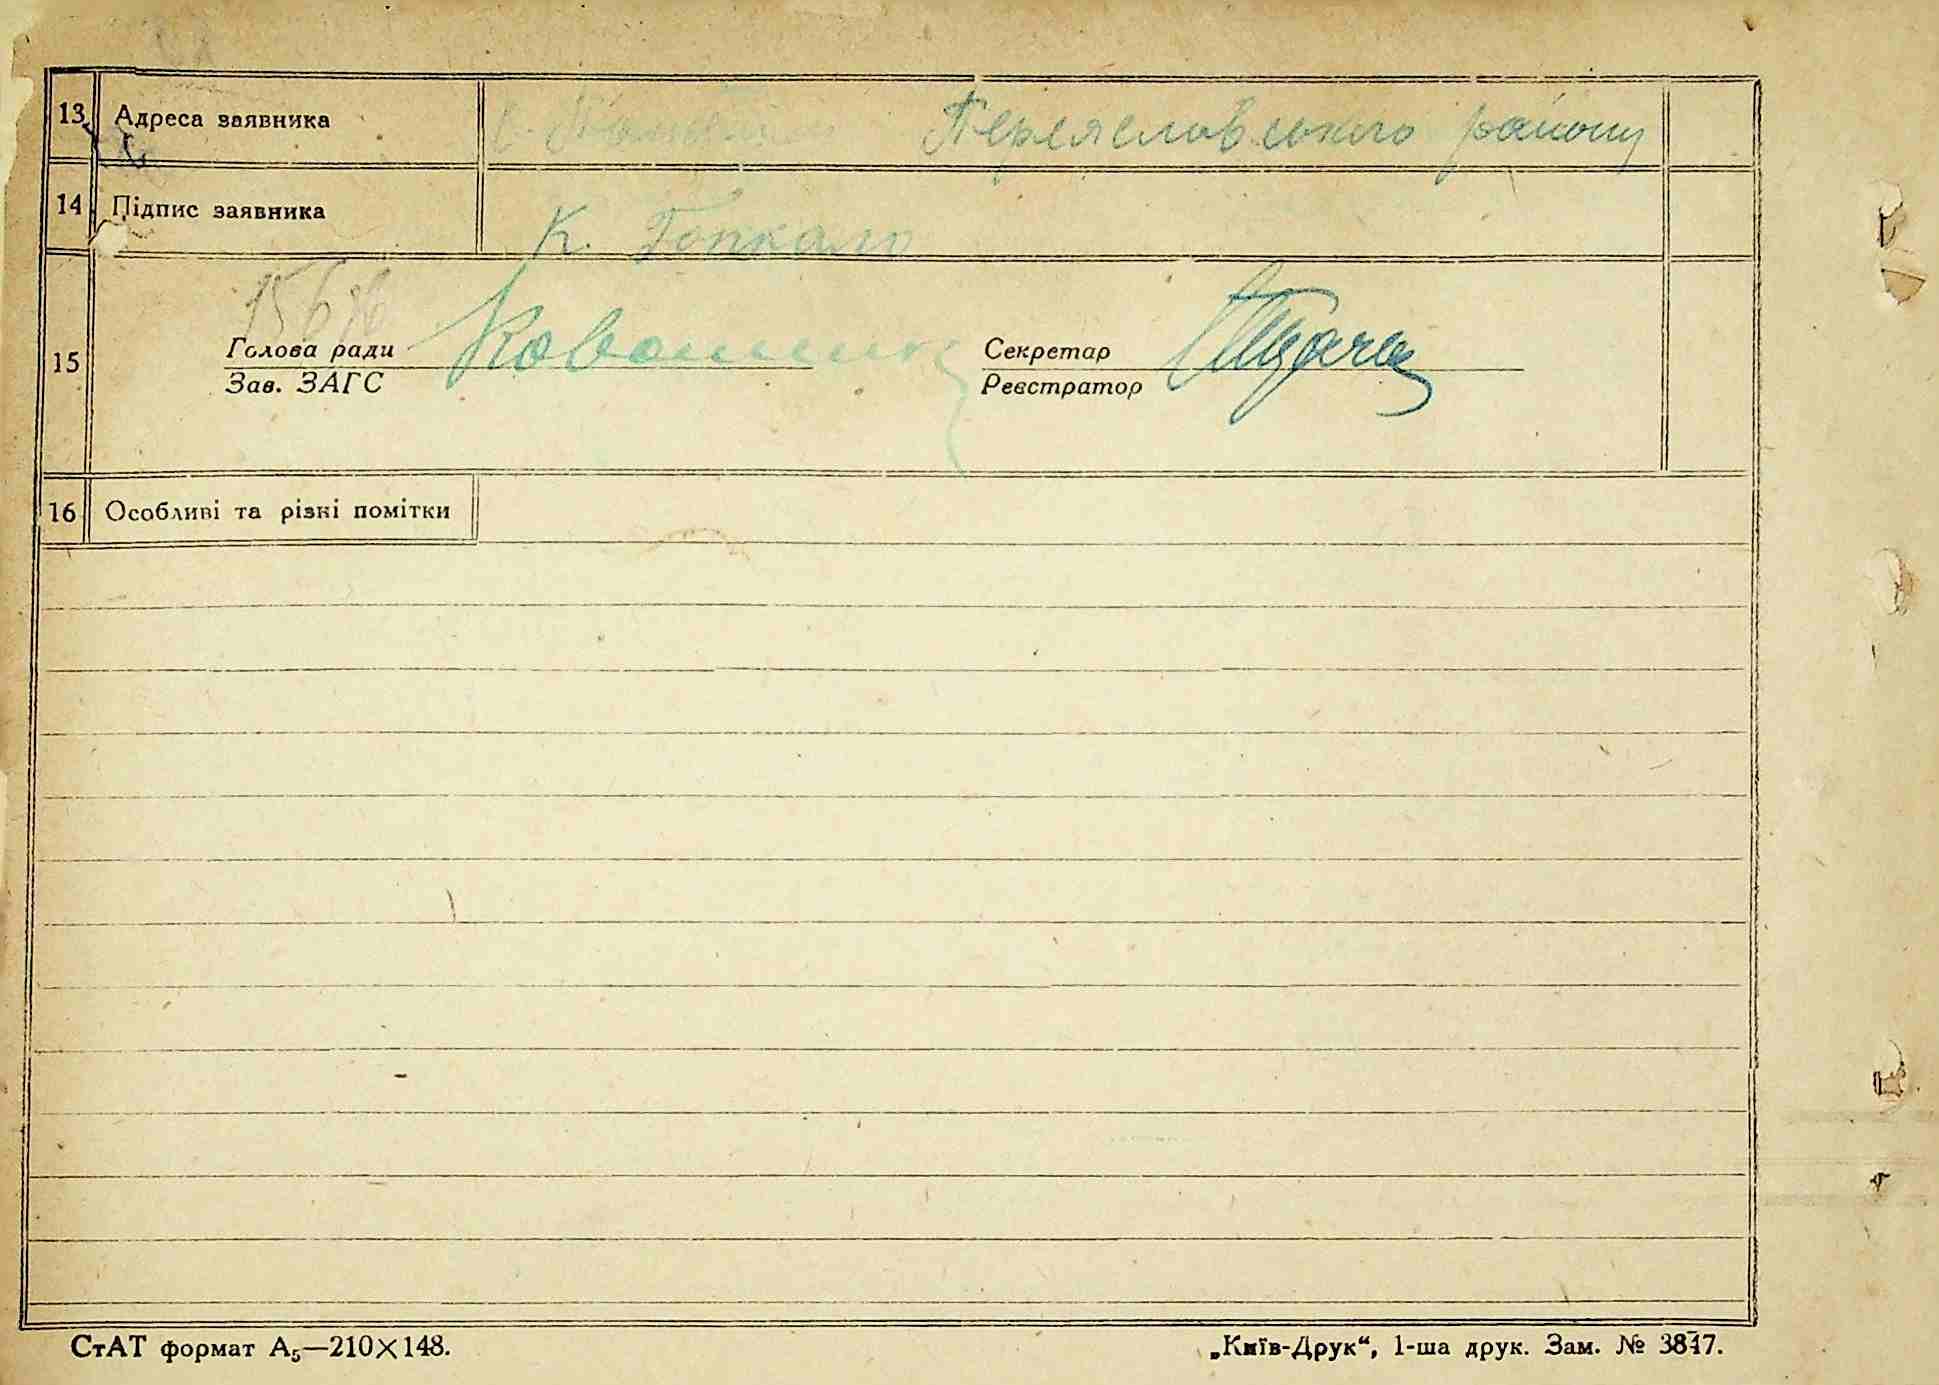 13 Адреса заявника с. Переяславського району
14 Підпис заявника К. Гопкало
15
Голова ради Секретар
Зав. ЗАГС Реєстратор
16 Особливі та різні помітки
СтАТ формат А₅—210×148. „Київ-Друк“, 1-ша друк. Зам. № 3847.